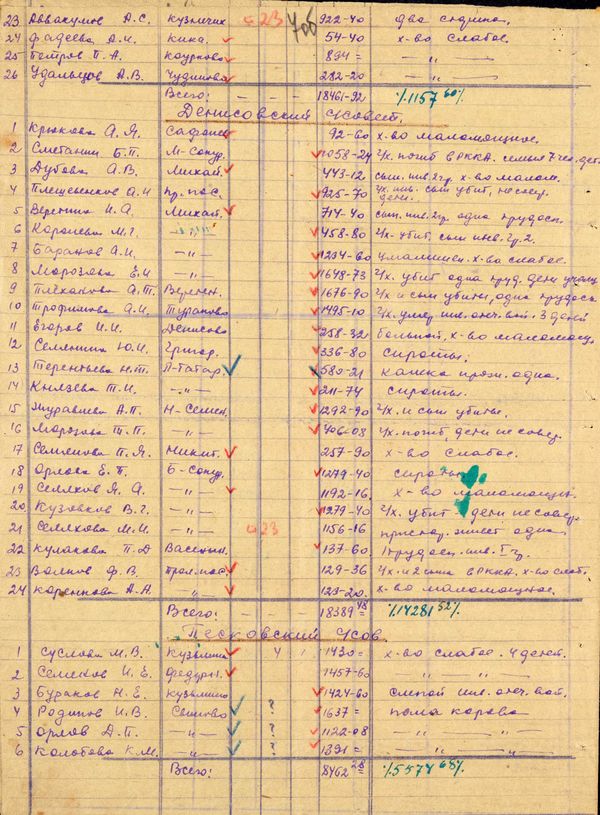 23 Аввакумов А.С. Кузьмич. 23 922-40 два содина.
24 Фадеева А.И. Кика. 706 54-40 х-во слабое.
25 Петров П.А. Коурково 894= —"—
26 Удальцов А.В. Чудинова 282-20 —"—
Всего: - - - 18461-92 %1157 60%
Денисовский с/совет.
1 Крюкова А.Я. 92-60 х-во маломощное.
2 Сметанин Б.П. М-Сонур. 1058-24 ч/х. погиб в РККА. семья 7 чел. дет.
3 Дубова А.В. Михай. 443-12 сын. инв. 2гр. х-во малом.
4 Плешевенков А.И пр. пос. 925-70 ч/х. инв. сын убит, не совер. дети.
5 Веренина И.А. Михай. 714-40 сын. инв. 2гр. одна трудосп.
6 Королева М.Г. —"— 458-80 ч/х-убит, сын инв. гр. 2.
7 Баранов А.И. —"— 1234-60 х-во слабое.
8 Морозова Е.И —"— 1648-73 ч/х. убит одна труд. дети учащ
9 Плеханова А.Т. Верен. 1676-90 ч/х и сын убиты, одна трудосп.
10 Трофимова А.И. Турапово 1495-10 ч/х. умер инв. отеч. вой. 3 детей
11 Егоров И.И. Денисово 258-32 больной, х-во маломощ.
12 Семенина Ю.И. Григор. 336-80 сироты.
13 Терентьева Н.Т. П-Татар. 580-21 одна.
14 Князева Т.И. —"— 211-74 сироты.
15 Журавлева А.П. Н-Семен. 1292-90 ч/х. и сын убиты.
16 Морозова Т.П. —"— 406-08 ч/х. погиб, дети не совер.
17 Семенова П.Я. Никит. 257-90 х-во слабое.
18 Орлова Е.П. Б-Сонур. 1279-40 сироты
19 Селяков Я.А. —"— 1192-16. х-во маломощн.
20 Кузовков В.Г. —"— 1279-40 ч/х. убит - дети не совер.
21 Селяхова М.И. —"— 23 1156-16 престар. живет одна.
22 Кулакова П.Д Васенин. 137-60 1 трудосп. инв. 1 гр.
23 Волков Ф.В. Прол. пос. 129-36 ч/х. и 2 сына в РККА. х-во слаб.
24 Коренкова А.А. —"— 123-20. х-во маломощное.
Всего: - - - 18389 48 %14281 52%
Песковский с/сов.
1 Суслова М.В. Кузьмина 4 1 1430= х-во слабое. 4 детей.
2 Семенов И.Е. Федурн. 1457-60 —"— —"—
3 Бураков Н.Е. Кузьмино 1424-60 слепой инв. отеч. вой.
4 Родинов И.В. Сошово ? 1637= пала корова
5 Орлов А.П. —"— ? 1122-08 —"— —"—
6 Колобова К.М. —"— ? 1391= —"— —"—
Всего: 8462 28 %5574 68%